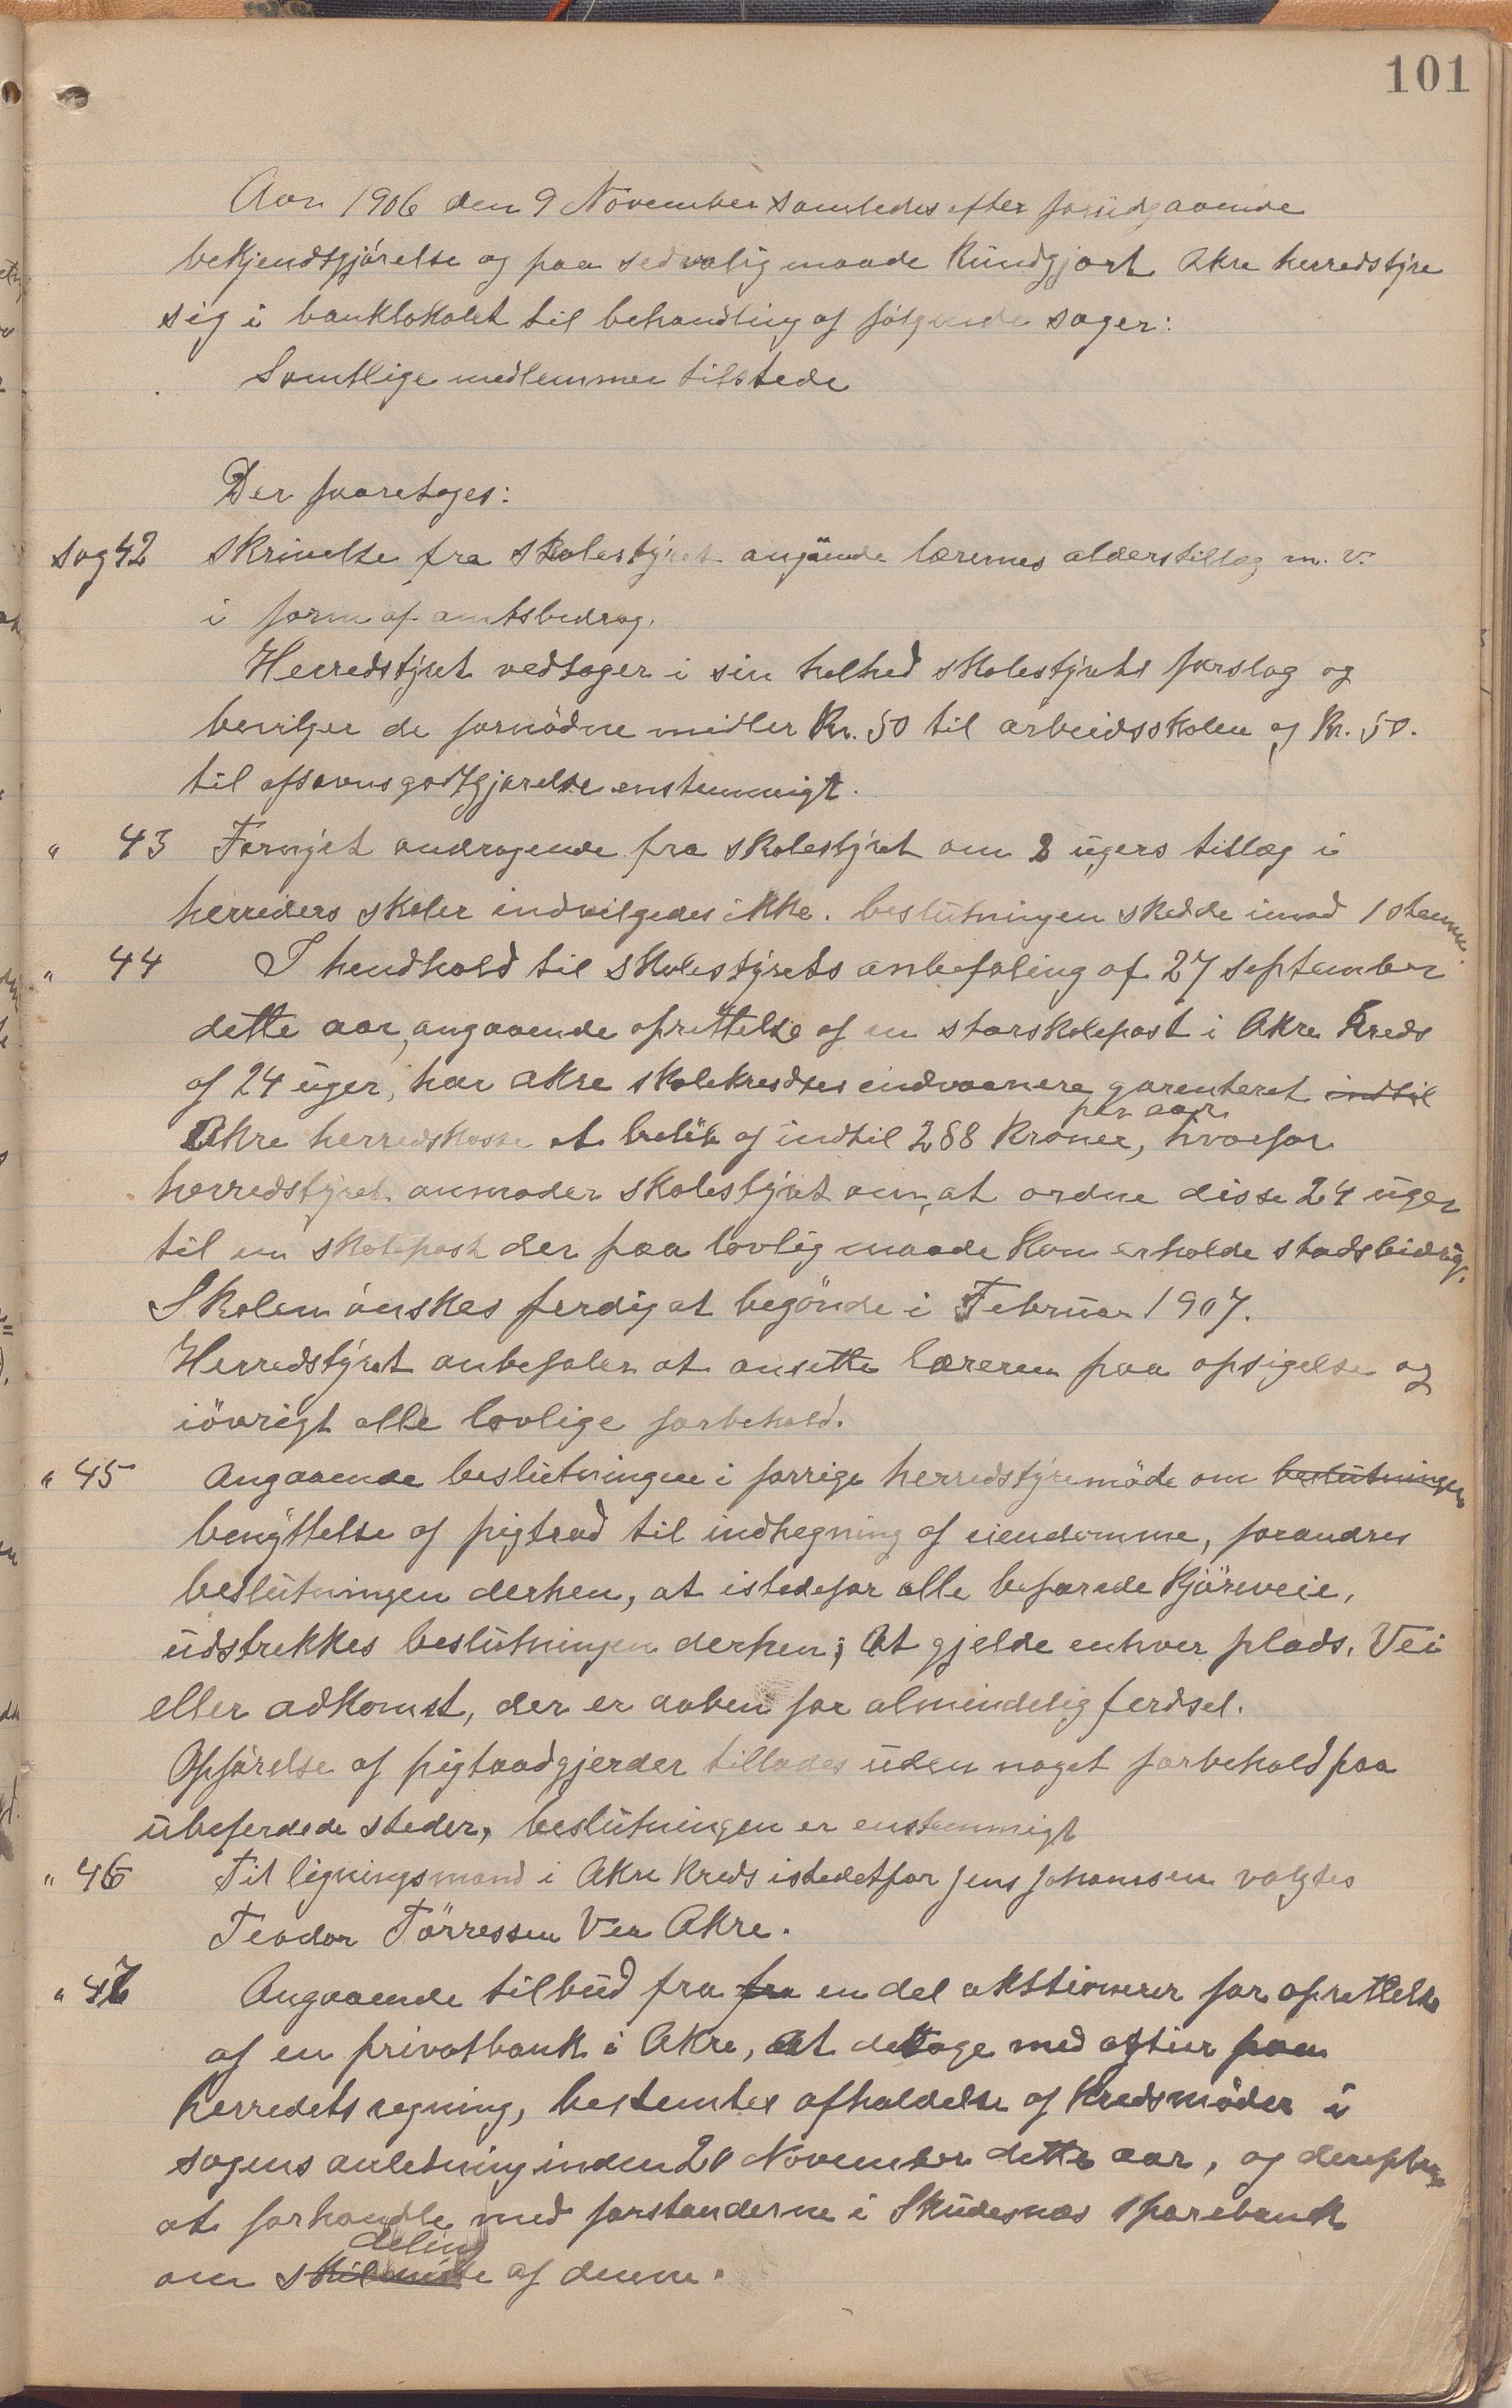 101
Aar 1906 den 9 November samledes efter forudgaaende
bekjendtgjörelse og paa sedvalig maade kundgjort Akre herredstyre
sig i banklokalet til behandling af fölgende sager:
Samtlige medlemmer tilstede
Der fooretoges:
Sag 42 Skrivelse fra Skolestyret angående lærernes alderstillæg m. v.
i form af amtsbidrag.
Herredstyret vedtager i sin helhed skolestyrets forslag og
bevilger de fornödne midler Kr. 50 til arbeidsskolen og Kr. 50.
til afsavnsgodtgjörelse enstemmigt.
" 43 Fornyet andragende fra skolestyret om 2 ugers tillæg i
herreders skoler indvilgedes ikke. beslutningen skedde imod 1 stemme.
" 44 I hendhold til skolestyrets anbefaling af 27 september
dette aar, angaaende oprettelse af en storskolepost i Akre Kreds
af 24 uger, har akre skolekredses indvaanere garenteret indtil
per aar
Akre herredskasse et belöb af indtil 288 Kroner, hvorfor
herredstyret anmoder skolestyret om, at ordne disse 24 uger
til en skolepost der paa lovlig maade kan erholde stadsbidrag.
Skolen önskes ferdig at begönde i Februar 1907.
Herredstyret anbefaler at ansette læreren paa opsigelse og
iövrigt alle lovlige forbehold.
" 45 Angaaende beslutningen i forrige herredstyremöde om beslutningen
benyttelse af pigtraad til indhegning af eiendomme, forandres
beslutningen derhen, at istedefor alle befarede Kjöreveie,
udstrekkes beslutningen derhen; At gjelde enhver plads, Vei
eller adkomst, der er aaben for almindelig ferdsel.
Opförelse af pigtraadgjerder tillades uden noget forbehold paa
ubeferdede steder, beslutningen er enstemmigt
" 46 Til ligningsmand i Akre Kreds istedetfor Jens Johannsen valgtes
Teodor Törressen Vea Akre.
" 47 Angaaende tilbud fra fra en del akstionerer for oprettelse
af en privatbank i Akre, at deltage med aktier paa
herredets regning, bestemtes afholdelse af Kredsmöder i
sagens anledning inden 20 November dette aar, og derefter
at forhandle med forstanderne i Skudesnæs Sparebank
deling
om skilsmisse af denne.